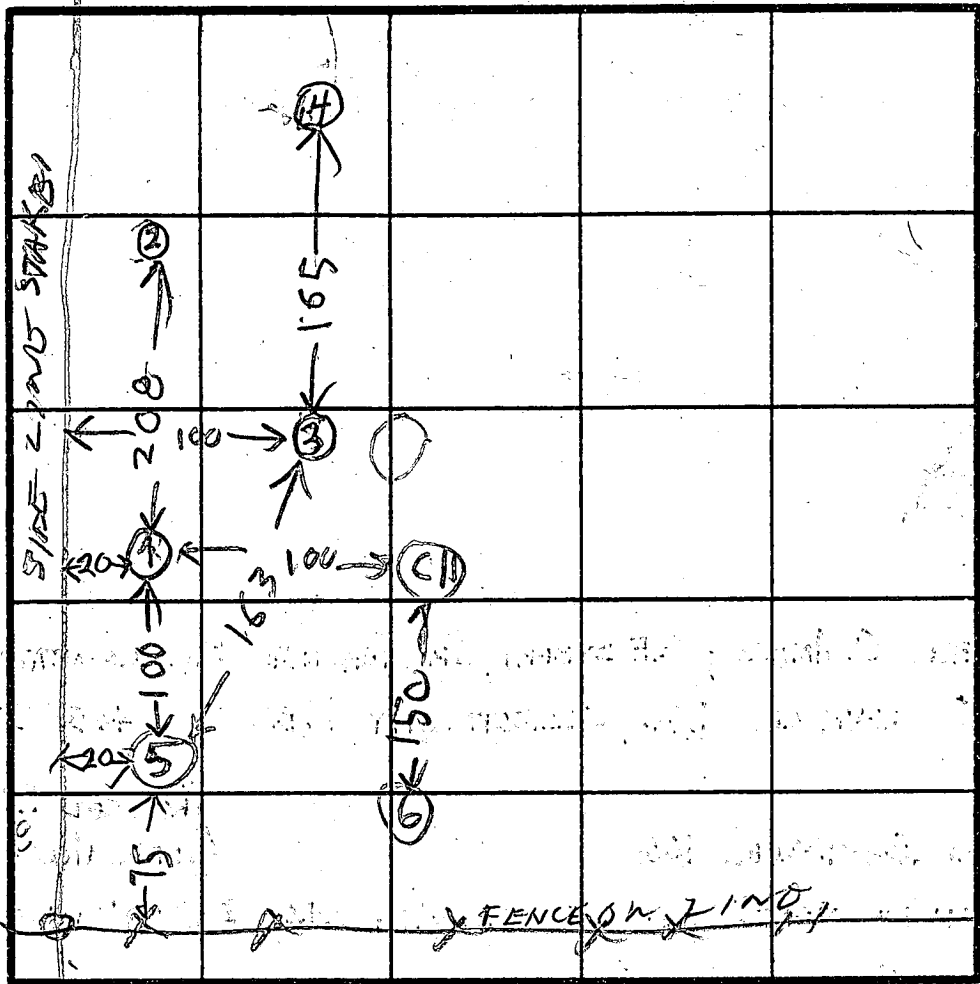 4
SIDE LINE STAKED
2
165
208
100
3
1
20
100
CH
163
100
150
20
5
6
75
FENCE ON LINE